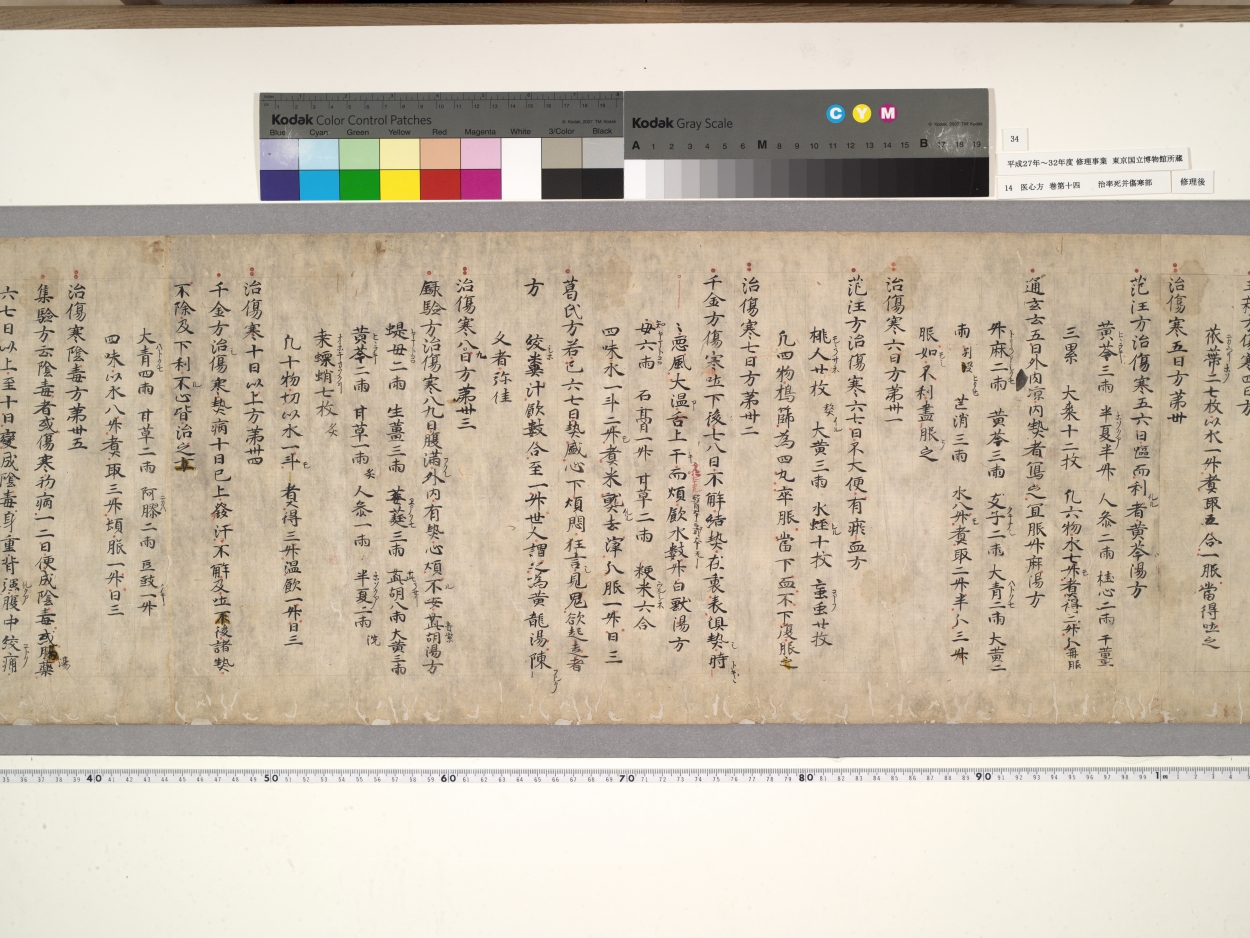 Kodak Color Control Patches
© Kodak, 2007 TM: Kodak
Blue Cyan Green Yellow Red Magenta White 3/Color Black
Kodak Gray Scale
C Y M
© Kodak, 2007 TM: Kodak
A 1 2 3 4 5 6 M 7 8 9 10 11 12 13 14 15 B 17 18 19
34
平成27年～32年度 修理事業 東京国立博物館所蔵
14 医心方 巻第十四 治卒死并傷寒部
修理後
茋蒂二七枚以水一升煮取五合一服當得吐之
治傷寒五日方第卅
范汪方治傷寒五六日區而利者黄芩湯方
黄芩三兩 半夏半升 人参二兩 桂心二兩 干薑
三累 大棗十二枚 凡六物水七升煮得二升分再服
通玄云五日外肉凉内熱者寫之宜服升麻湯方
升麻二兩 黄芩三兩 支子二兩 大青二兩 大黄二
兩 芒消三兩 水八升煮取二升半分三升
服如不利盡服之
治傷寒六日方第卅一
范汪方治傷寒六七日不大便有瘀血方
桃人廿枚 大黄三兩 水蛭十枚 䖟虫廿枚
凡四物擣篩為四丸卒服當下血不下復服之
治傷寒七日方第卅二
千金方傷寒吐下後七八日不解結熱在裏表俱熱時
々悪風大温舌上干而煩飲水數升白獸湯方
母六兩 石膏一升 甘草二兩 粳米六合
四味水一斗二升煮米熟去滓分服一升日三
葛氏方若已六七日熱盛心下煩悶狂言見鬼欲起走者
方 絞糞汁飲數合至一升世人謂之為黄龍湯陳
久者弥佳
治傷寒八九日方第卅三
録驗方治傷寒八九日腹滿外内有熱心煩不安茈胡湯方
蝭母二兩 生薑三兩 萎蕤三兩 茈胡八兩 大黄三兩
黄芩二兩 甘草一兩炙 人参一兩 半夏一兩洗
桒螵蛸七枚炙
凡十物切以水一斗煮得三升温飲一升日三
治傷寒十日以上方第卅四
千金方治傷寒熱病十日已上發汗不解及吐下後諸熱
不除及下利不心皆治之方
大青四兩 甘草二兩 阿膠二兩 豆豉一升
四味以水八升煮取三升頓服一升日三
治傷寒陰毒方第卅五
集驗方云陰毒者或傷寒初病一二日便成陰毒或服藥
六七日以上至十日變成陰毒身重背強腹中絞痛